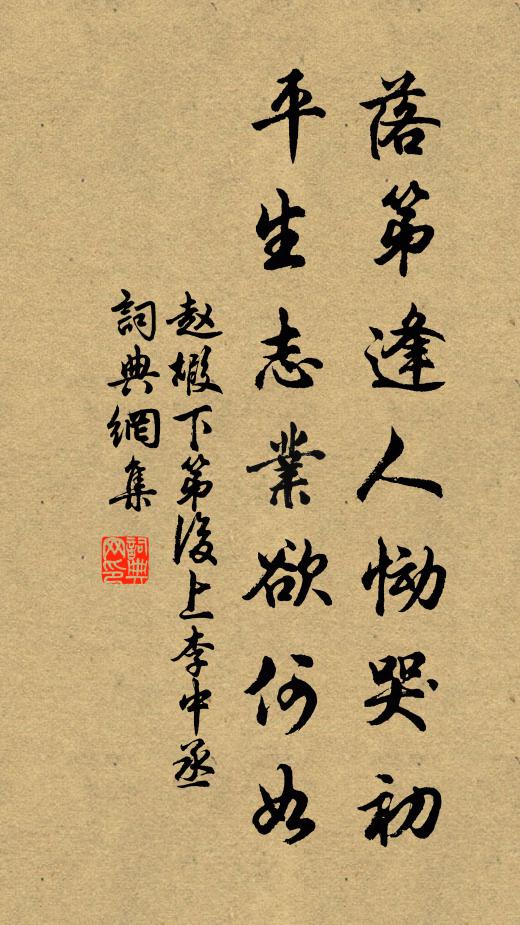 落第逢人慟哭初
平生志業欲何如
赵嘏下第後上李中丞
詞典網集
詞典网印